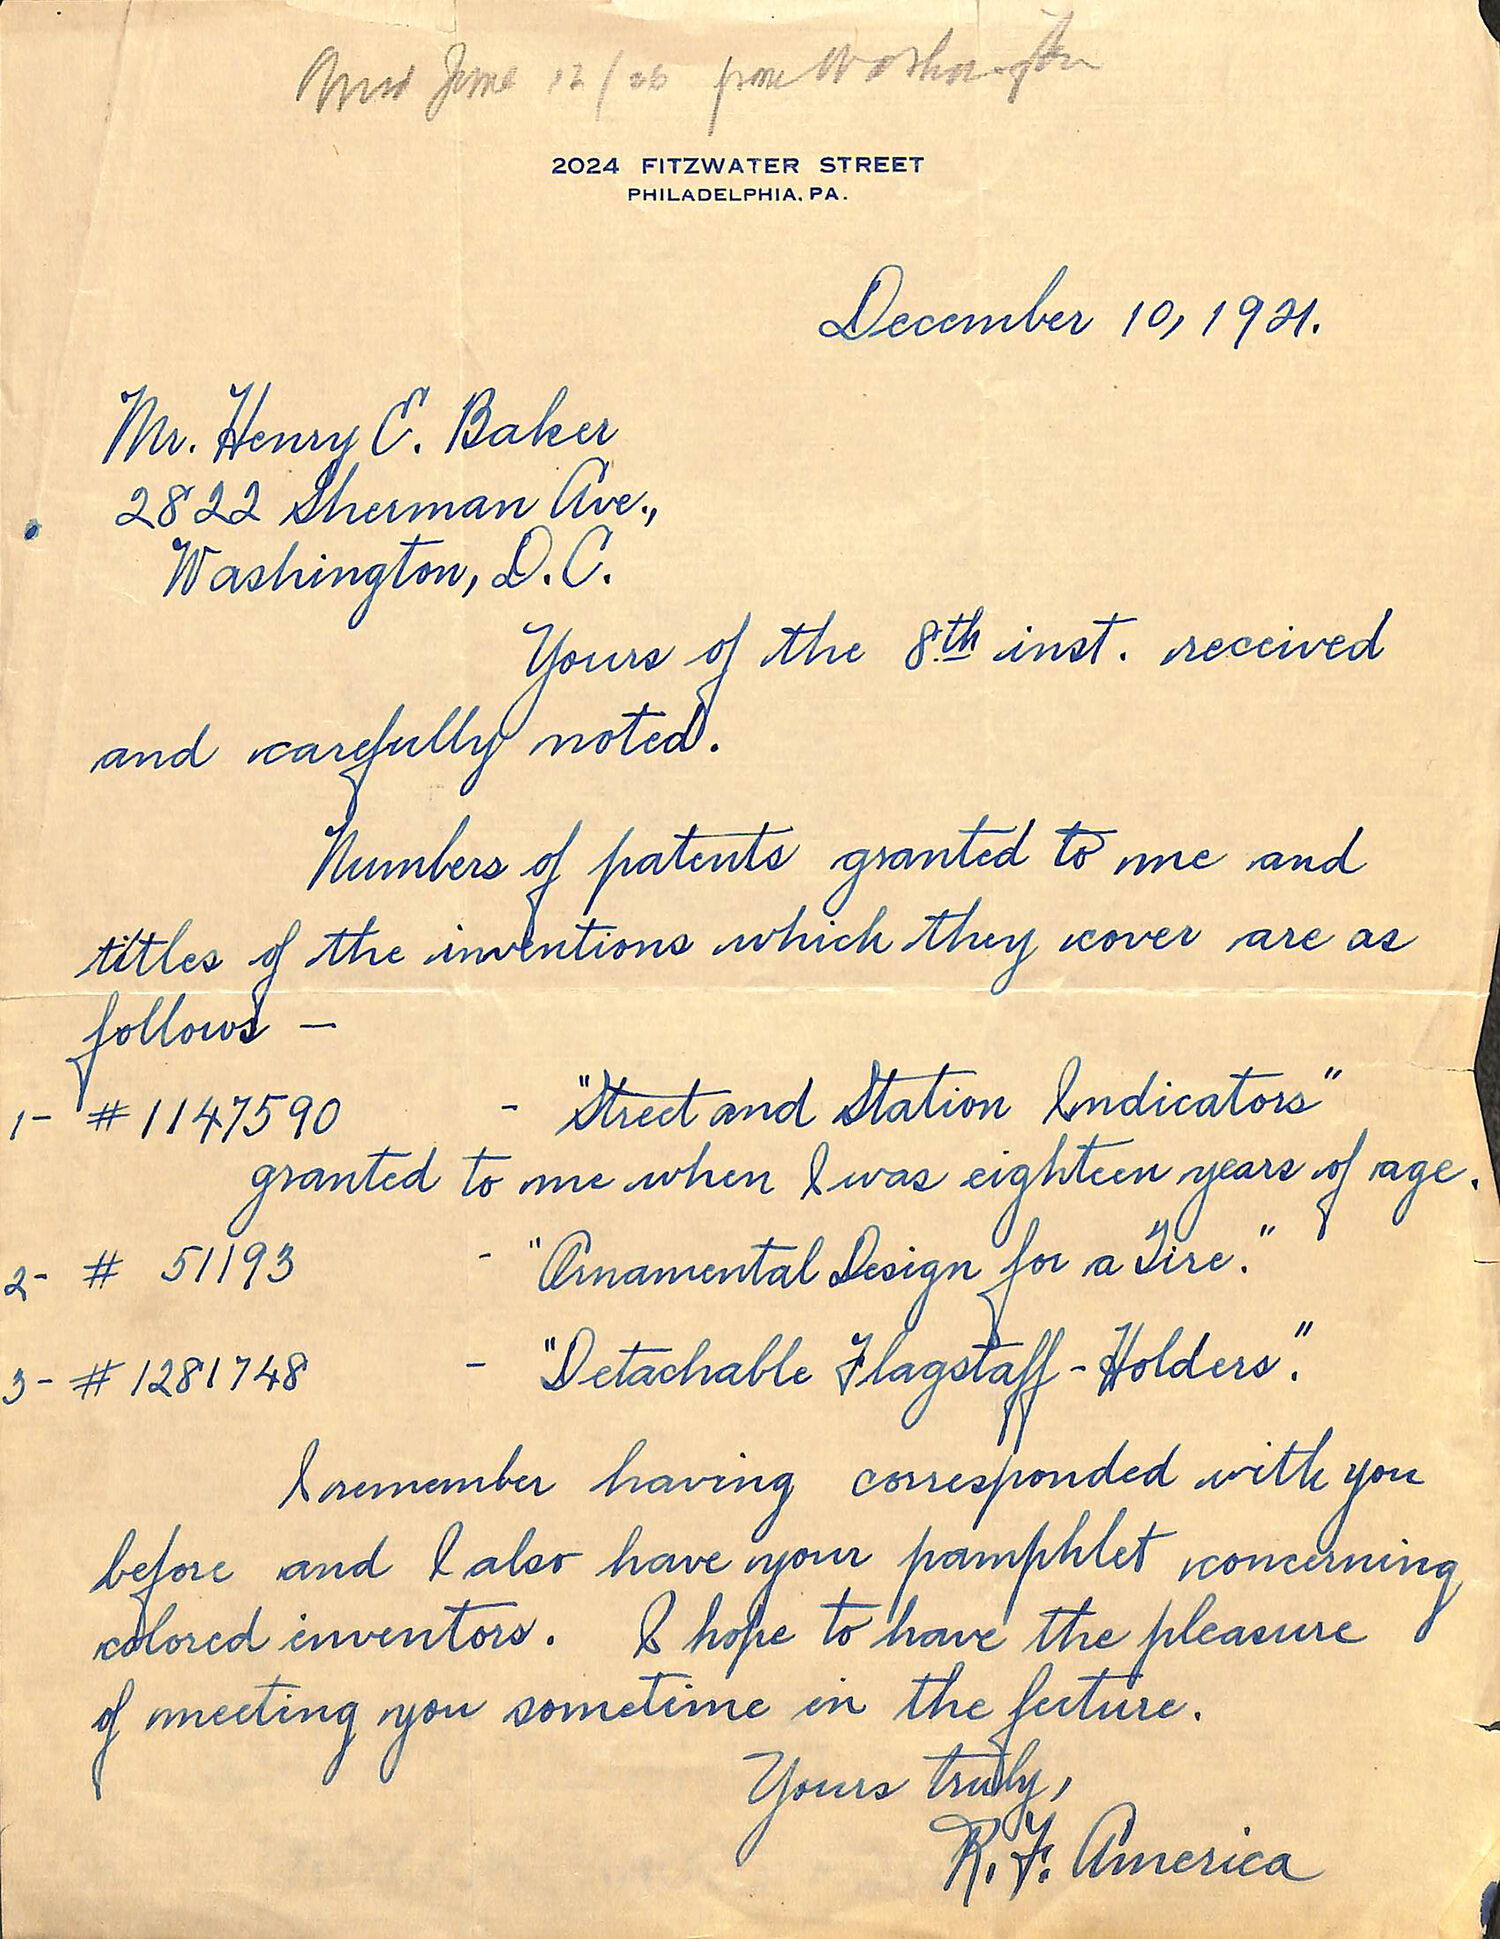 June 12/26 from Washington
2024 FITZWATER STREET
PHILADELPHIA, PA.
December 10, 1921.
Mr. Henry E. Baker
2822 Sherman Ave.,
Washington, D.C.
Yours of the 8th inst. received
and carefully noted.
Numbers of patents granted to me and
titles of the inventions which they cover are as
follows —
1- #1147590 - "Street and Station Indicators"
granted to me when I was eighteen years of age.
2- # 51193 - "Ornamental Design for a Tire."
3- #1281748 - "Detachable Flagstaff-Holders".
I remember having corresponded with you
before and I also have your pamphlet concerning
colored inventors. I hope to have the pleasure
of meeting you sometime in the future.
Yours truly,
R. F. America